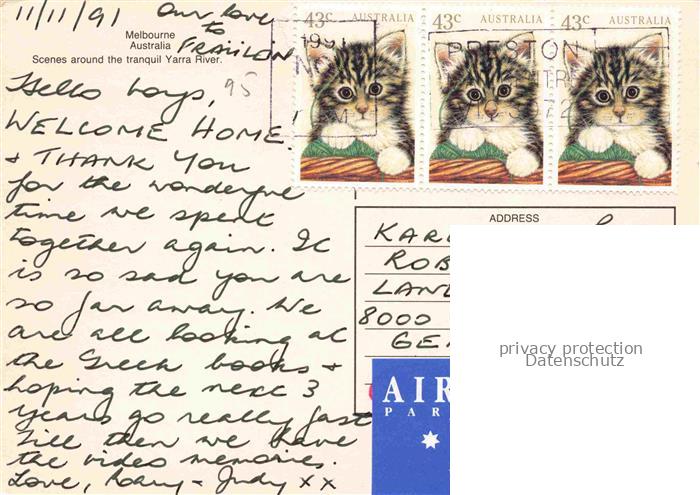 11/11/91 Our love
to
FRAIILON
Melbourne
Australia
Scenes around the tranquil Yarra River.
95
Hello boys,
WELCOME HOME!
& THANK YOU
for the wonderful
time we spent
together again. It
is so sad you are
so far away. We
are all looking at
the Greek books &
hoping the next 3
years go really fast
Till then we have
the video memories.
Love, Rory & Judy xx
43c AUSTRALIA
43c AUSTRALIA
43c AUSTRALIA
PRESTON
ADDRESS
KAR
ROB
LAN
8000
GE
AIR
PAR
privacy protection
Datenschutz